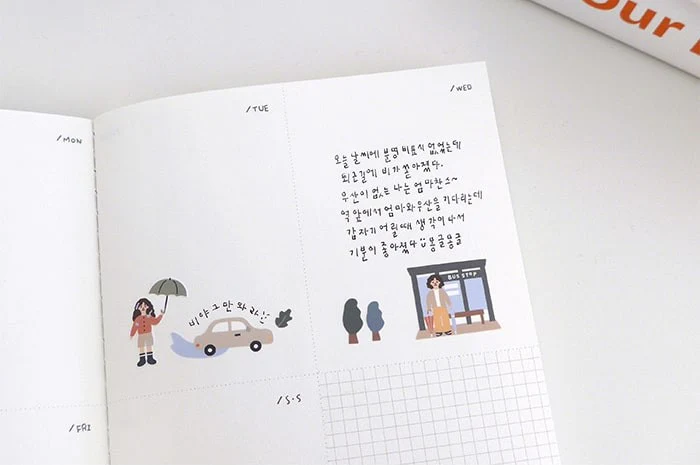 /MON
/TUE
/WED
오늘 날씨에 분명 비표시 없었는데
퇴근길에 비가 쏟아졌다.
우산이 없는 나는 엄마찬스~
역 앞에서 엄마와 우산을 기다리는데
갑자기 어릴때 생각이 나서
기분이 좋아졌다 :) 몽글몽글
비야 그만 와라
BUS STOP
/FRI
/S·S
our